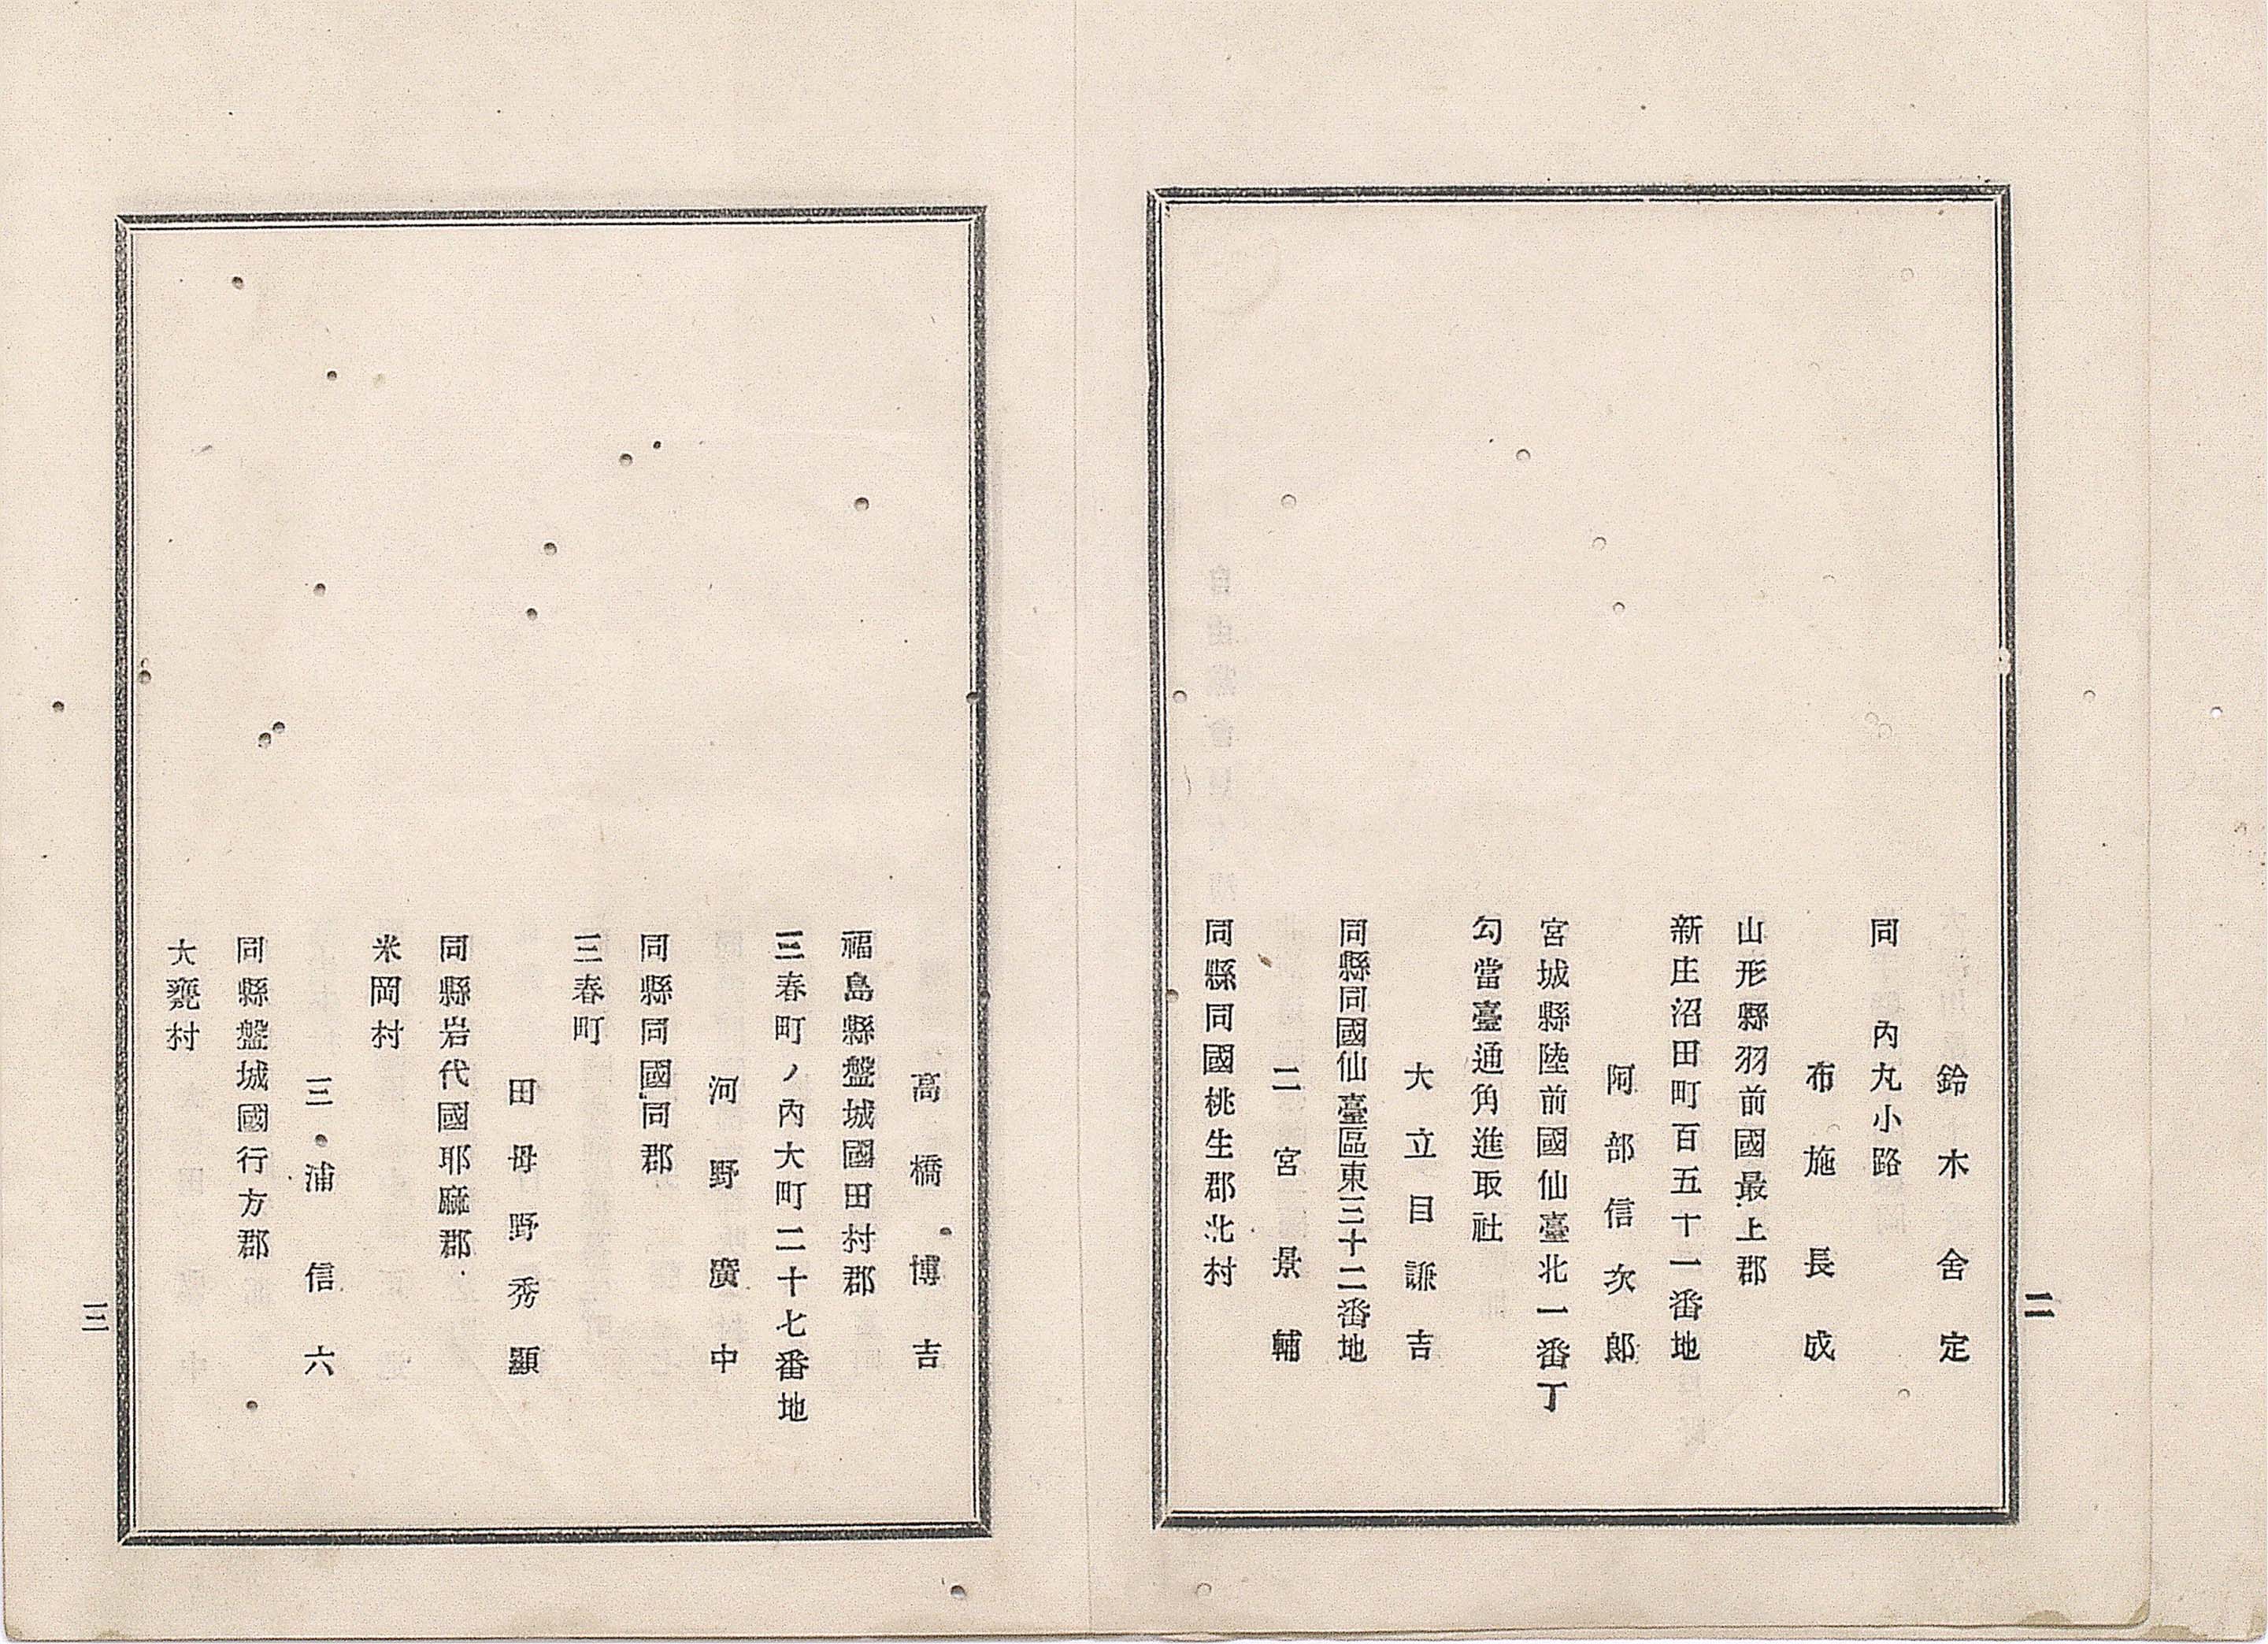 二
鈴木舍定
同　內丸小路
布施長成
山形縣羽前國最上郡
新庄沼田町百五十一番地
阿部信次郞
宮城縣陸前國仙臺北一番丁
勾當臺通角進取社
大立目謙吉
同縣同國仙臺區東三十二番地
二宮景輔
同縣同國桃生郡北村
高橋博吉
福島縣盤城國田村郡
三春町ノ內大町二十七番地
河野廣中
同縣同國同郡
三春町
田母野秀顯
同縣岩代國耶麻郡
米岡村
三浦信六
同縣盤城國行方郡
大甕村
三